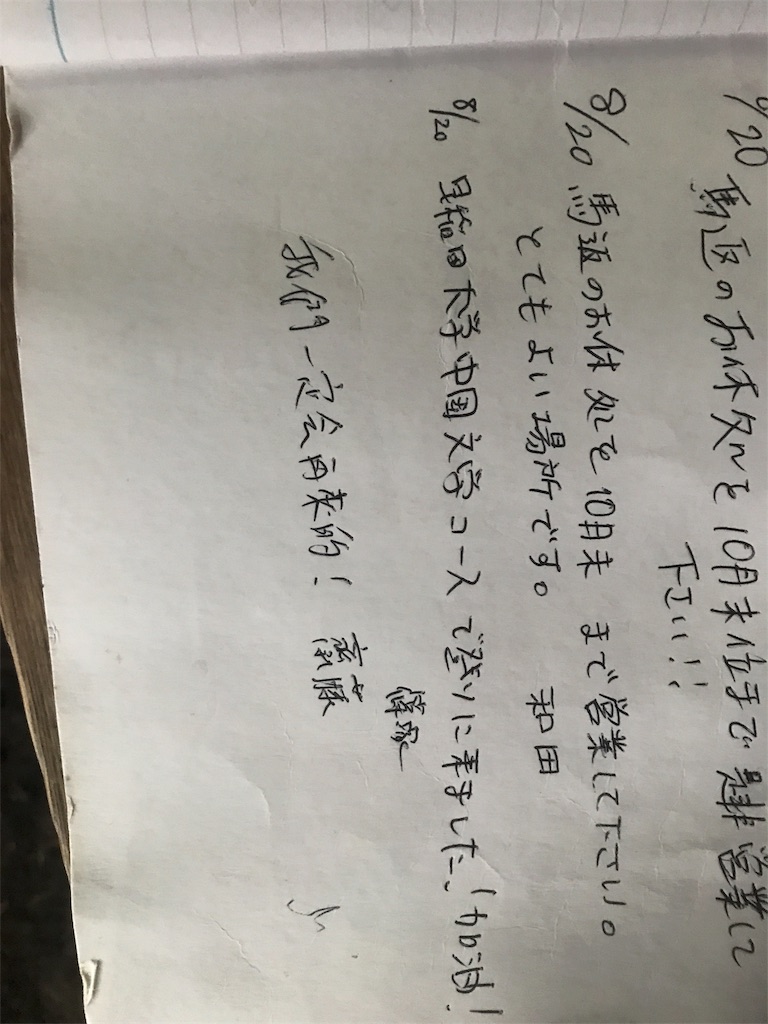 8/20 馬返のお休処を10月末位まで是非営業して
下さい!!
8/20 馬返のお休処を10月末 まで営業して下さい。
とてもよい場所です。 和田
8/20 早稲田大学中国文学コースで登りに来ました!加油!
我們一定会再来的!